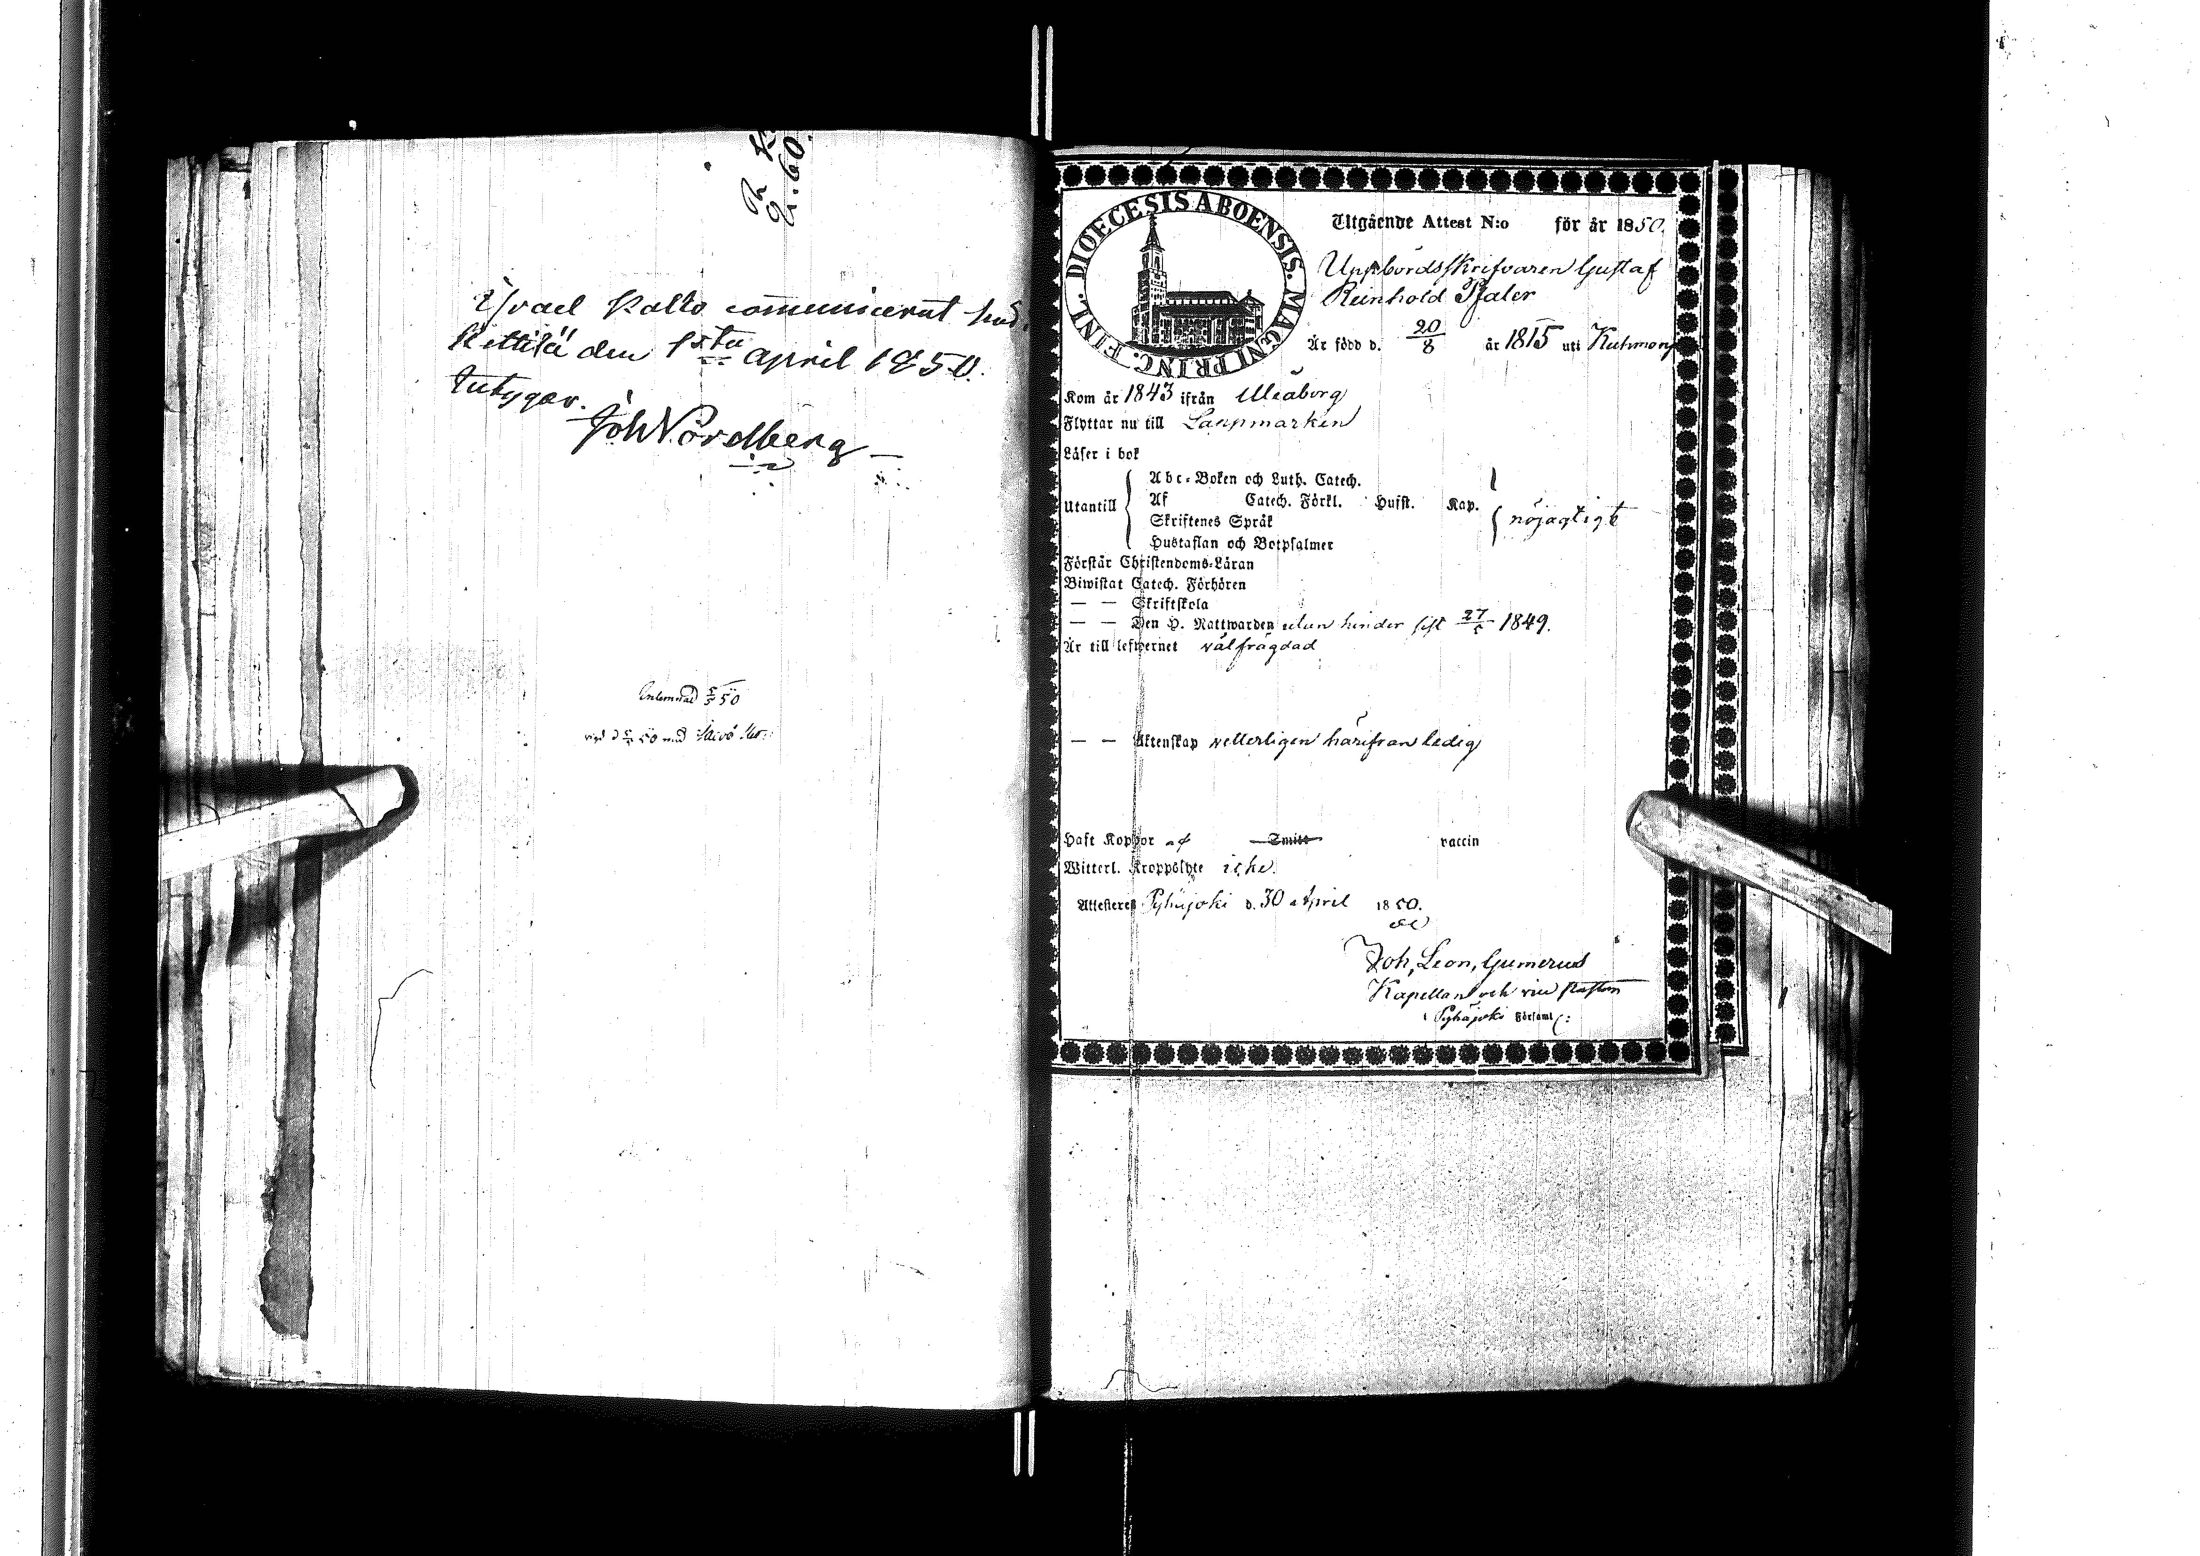 g. 60.
Israel Kalto communicerat här i
Kittilä den 1sta April 1850.
betygar.
Joh Nordberg
50
50 med
DIOECESIS ABOENSIS. MAGNI PRINC. FINL.
Utgående Attest N:o för år 1850.
Uppbördsskrifvaren Gustaf
Reinhold Pfaler
Är född d. 20/8 år 1815 uti Kuhmoni
Kom år 1843 ifrån Uleåborg
Flyttar nu till Lappmarken
Läser i bok
Utantill
Abc-Boken och Luth. Catech.
Af Catech. Förkl. Husft. Kap.
Skriftenes Språk
Hustaflan och Botpsalmer
nöjagtigt
Förstår Christendoms-Läran
Biwistat Catech. Förhören
— — Skriftskola
— — Den H. Nattwarden utan hinder sist 27/5 1849.
Är till lefwernet välfrägdad
— — Äktenskap vetterligen härifrån ledig
Haft Koppor af Smitt vaccin
Witterl. Kroppslyte icke.
Attesteres Pyhäjoki d. 30 April 1850.
Joh, Leon, Gumerus
Kapellan och vice Pastor
i Pyhäjoki Församl: